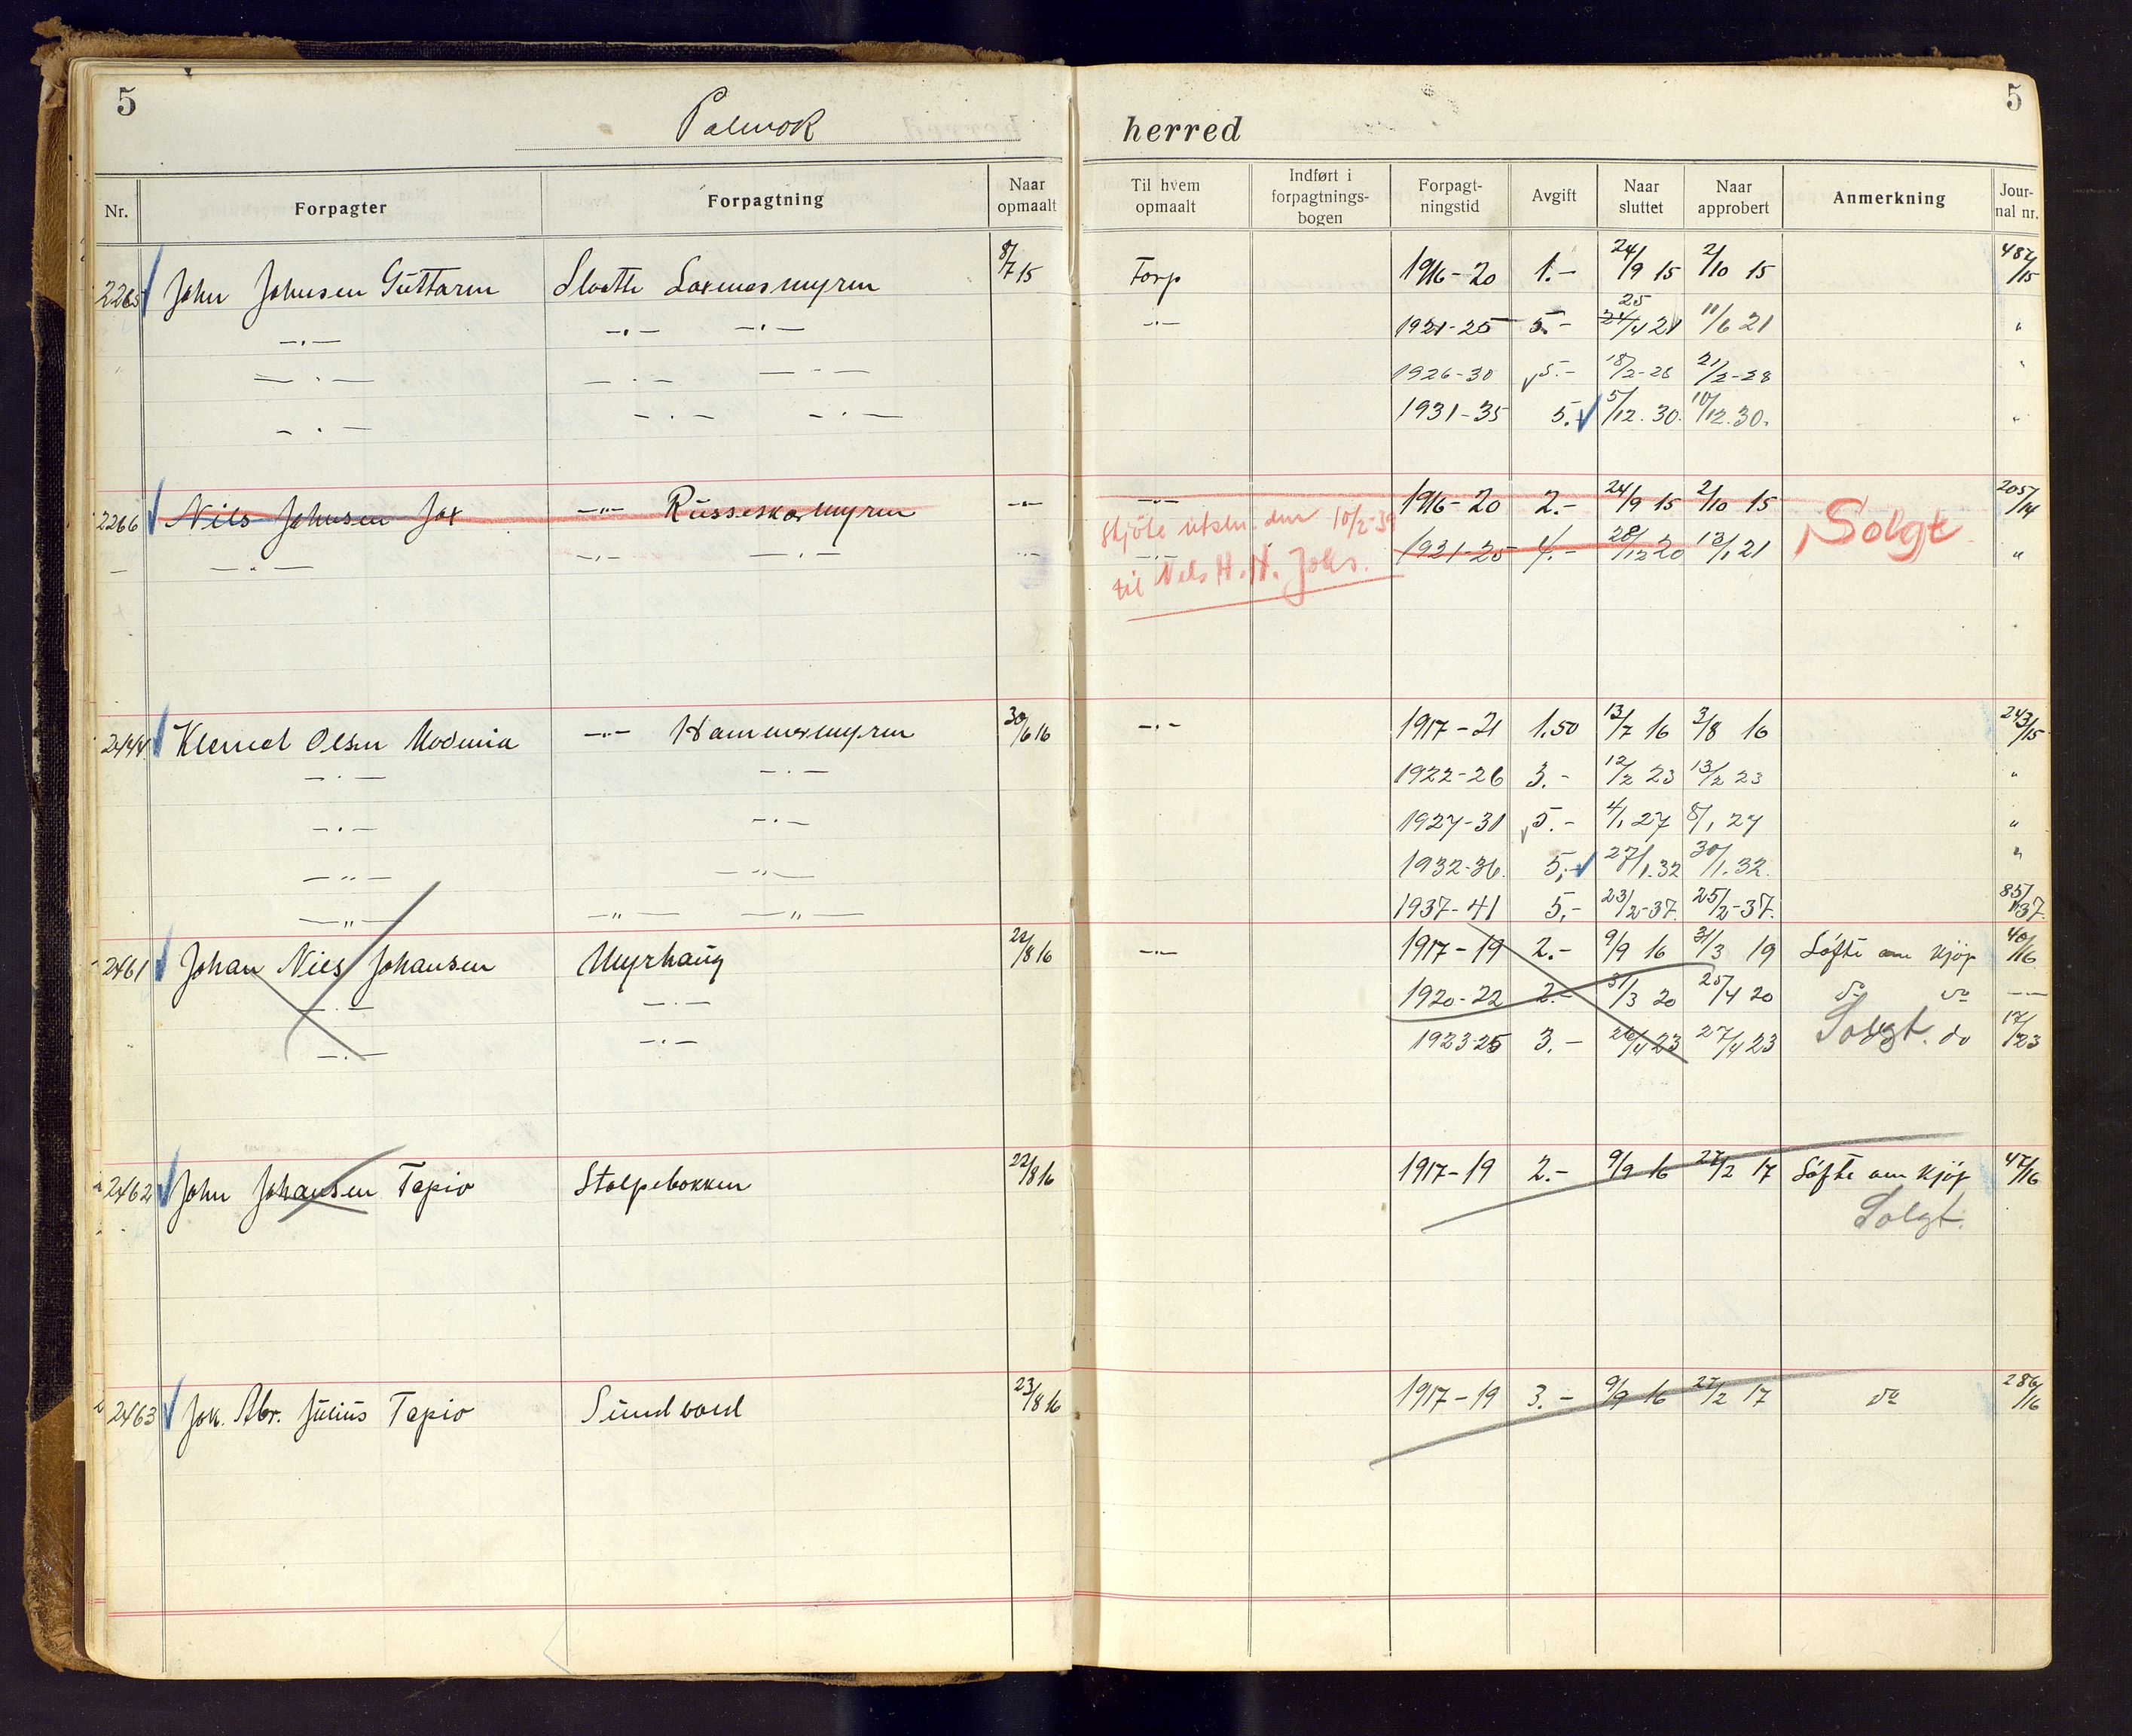 5
Polmak herred
5
Nr. Forpagter Forpagtning Naar opmaalt Til hvem opmaalt Indført i forpagtnings-bogen Forpagt-ningstid Avgift Naar sluttet Naar approbert Anmerkning Jour-nal nr.
2265 John Johnsen Guttorm Slaatte 8/7 15 Torp 1916-20 1.- 24/9 15 2/10 15 487/15
-"- -"- -"- -"- 1921-25 5.- 25/4 21 11/6 21 "
-"- -"- -"- 1926-30 5.- 18/2-28 21/2-28 "
-"- -"- -"- 1931-35 5. 5/12.30. 10/12.30. "
2266 Nils Johnsen Jox -"- Russeskarmyren -"- -"- 1916-20 2.- 24/9 15 2/10 15 Solgt 2057/14
Skjøte utsln. den 10/2-39
-"- -"- -"- -"- -"- 1921-25 4.- 28/12 20 13/1 21 "
til Nels H. H. Johs.
2444 Klemet Olsen Vodenia -"- Hammermyren 30/6 16 -"- 1917-21 1.50 13/7 16 3/8 16 243/15
-"- -"- 1922-26 3.- 12/2 23 13/2 23 "
-"- -"- 1927-31 5.- 4/1 27 8/1 27 "
-"- -"- 1932-36. 5,- 27/1.32 30/1.32. "
-"- -"- -"- 1937-41 5,- 23/2-37. 25/2-37. 85/37.
2461 Johan Nils Johansen Myrhaug 22/8 16 -"- 1917-19 2.- 9/9 16 31/3 19 Løfte om kjøp 40/16
-"- -"- 1920-22 2.- 31/3 20 25/4 20 do do -"-
-"- -"- 1923-25 3.- 26/4 23 27/4 23 Solgt. do 17/23
2462 John Johansen Tapio Stolpebakken 22/8 16 1917-19 2.- 9/9 16 27/2 17 Løfte om kjøp 47/16
Solgt.
2463 Joh. Abr. Julius Tapio Sundvoll 23/8 16 1917-19 3.- 9/9 16 27/2 17 do 286/16